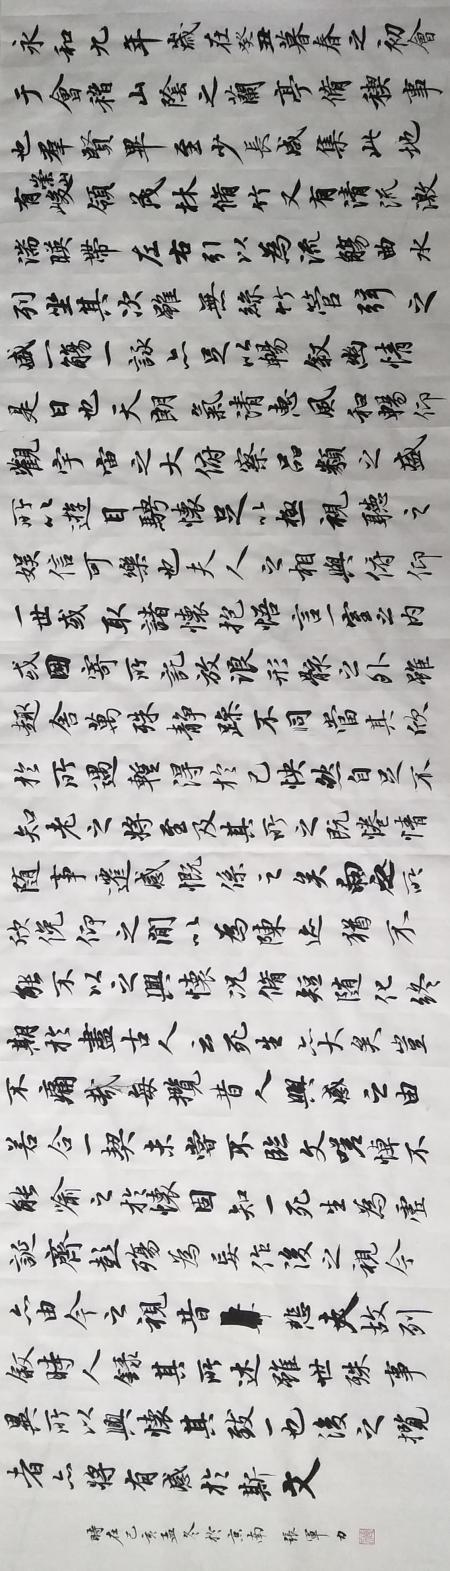 永和九年歲在癸丑暮春之初會
于會稽山陰之蘭亭脩稧事
也羣賢畢至少長咸集此地
有崇山峻領茂林脩竹又有清流激
湍暎帶左右引以為流觴曲水
列坐其次雖無絲竹管弦之
盛一觴一詠亦足以暢敘幽情
是日也天朗氣清惠風和暢仰
觀宇宙之大俯察品類之盛
所以遊目騁懷足以極視聽之
娛信可樂也夫人之相與俯仰
一世或取諸懷抱悟言一室之內
或因寄所託放浪形骸之外雖
趣舍萬殊靜躁不同當其欣
於所遇暫得於己怏然自足不
知老之將至及其所之既惓情
隨事遷感慨係之矣向之所
欣俛仰之間以為陳迹猶不
能不以之興懷況脩短隨化終
期於盡古人云死生亦大矣豈
不痛哉每攬昔人興感之由
若合一契未嘗不臨文嗟悼不
能喻之於懷固知一死生為虛
誕齊彭殤為妄作後之視今
亦由今之視昔悲夫故列
敘時人錄其所述雖世殊事
異所以興懷其致一也後之攬
者亦將有感於斯文
時在己亥孟冬於京南 張軍力